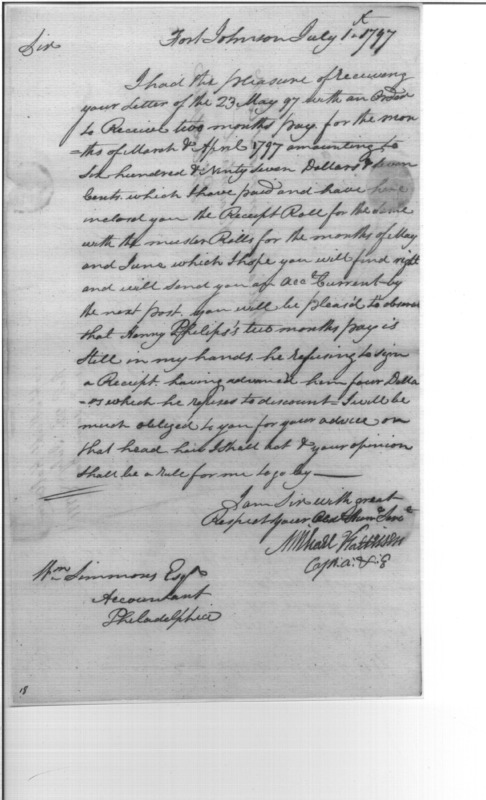 Fort Johnson July 1st 1797
Sir
I had the pleasure of receiving
your Letter of the 23 May 97 with an Order
to Receive two months pay for the mon
=ths of March & April 1797 amounting to
Six hundred & Ninty Seven Dollars &
Cents. which I have paid and have here
inclosed you the Receipt Roll for the Same
with the muster Rolls for the months of May
and June which I hope you will find right
and will Send you an Acct Current by
the next post. you will be pleas'd to observe
that Henry Philips's two months pay is
Still in my hands. he refusing to sign
a Receipt. having advanced him four Dolla
=rs which he refuses to discount. I will be
much obliged to you for your advice on
that head how I shall act & your opinion
Shall be a rule for me to go by —
I am Sir with great
Respect your Obdt Humle Servt
Michael Kalteisen
Capt. A. & E
Wm Simmons Esqr
Accountant
Philadelphia
18